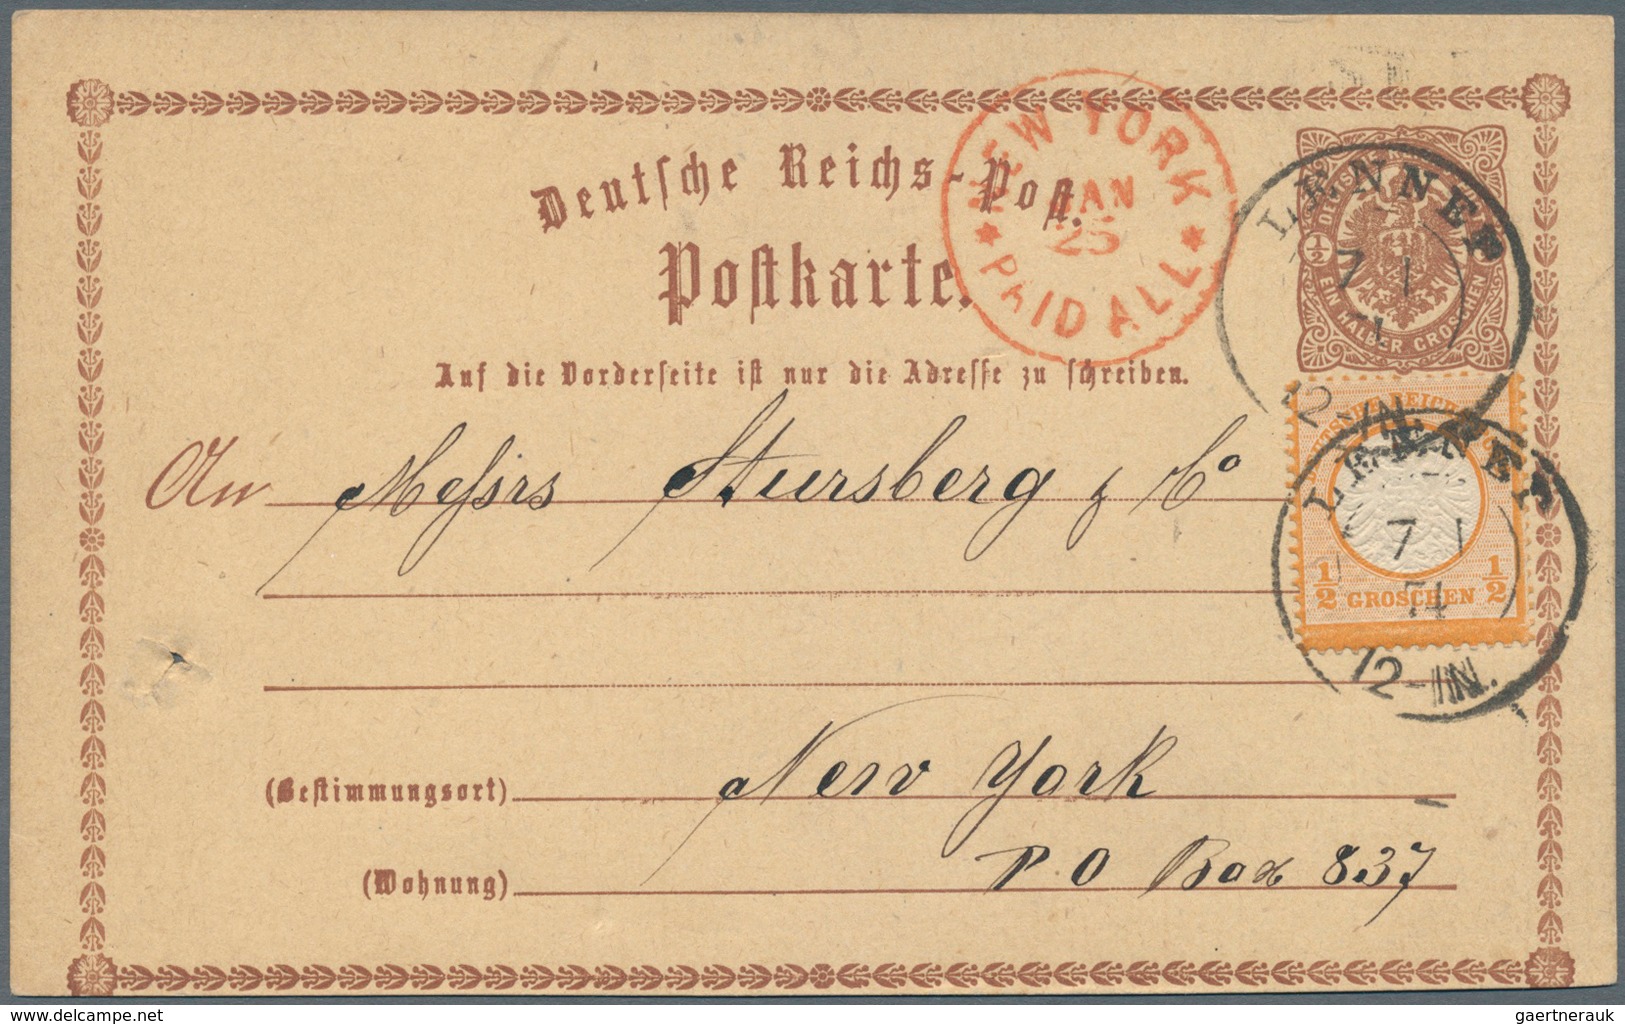 Deutsche Reichs-Post.
Postkarte.
NEW YORK
JAN
25
PAID ALL
LENNEP
7 1
½
EIN HALBER GROSCHEN
Auf die Vorderseite ist nur die Adresse zu schreiben.
An Messrs Stursberg & Co
LENNEP
7 1
74
12-1N.
½ GROSCHEN ½
(Bestimmungsort) New York
(Wohnung) P O Box 837
delcampe.net
gaertnerauk